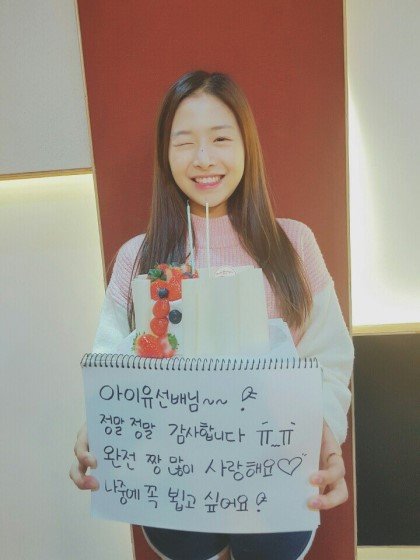 아이유선배님~~
정말 정말 감사합니다 ㅠ_ㅠ
완전 짱 많이 사랑해요♡
나중에 꼭 뵙고 싶어요